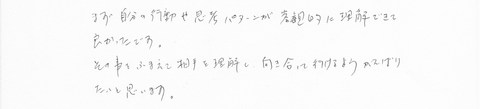 まず自分の行動や思考パターンが客観的に理解できて
良かったです。
その事をふまえて相手を理解し向き合って行けるようがんばり
たいと思います。